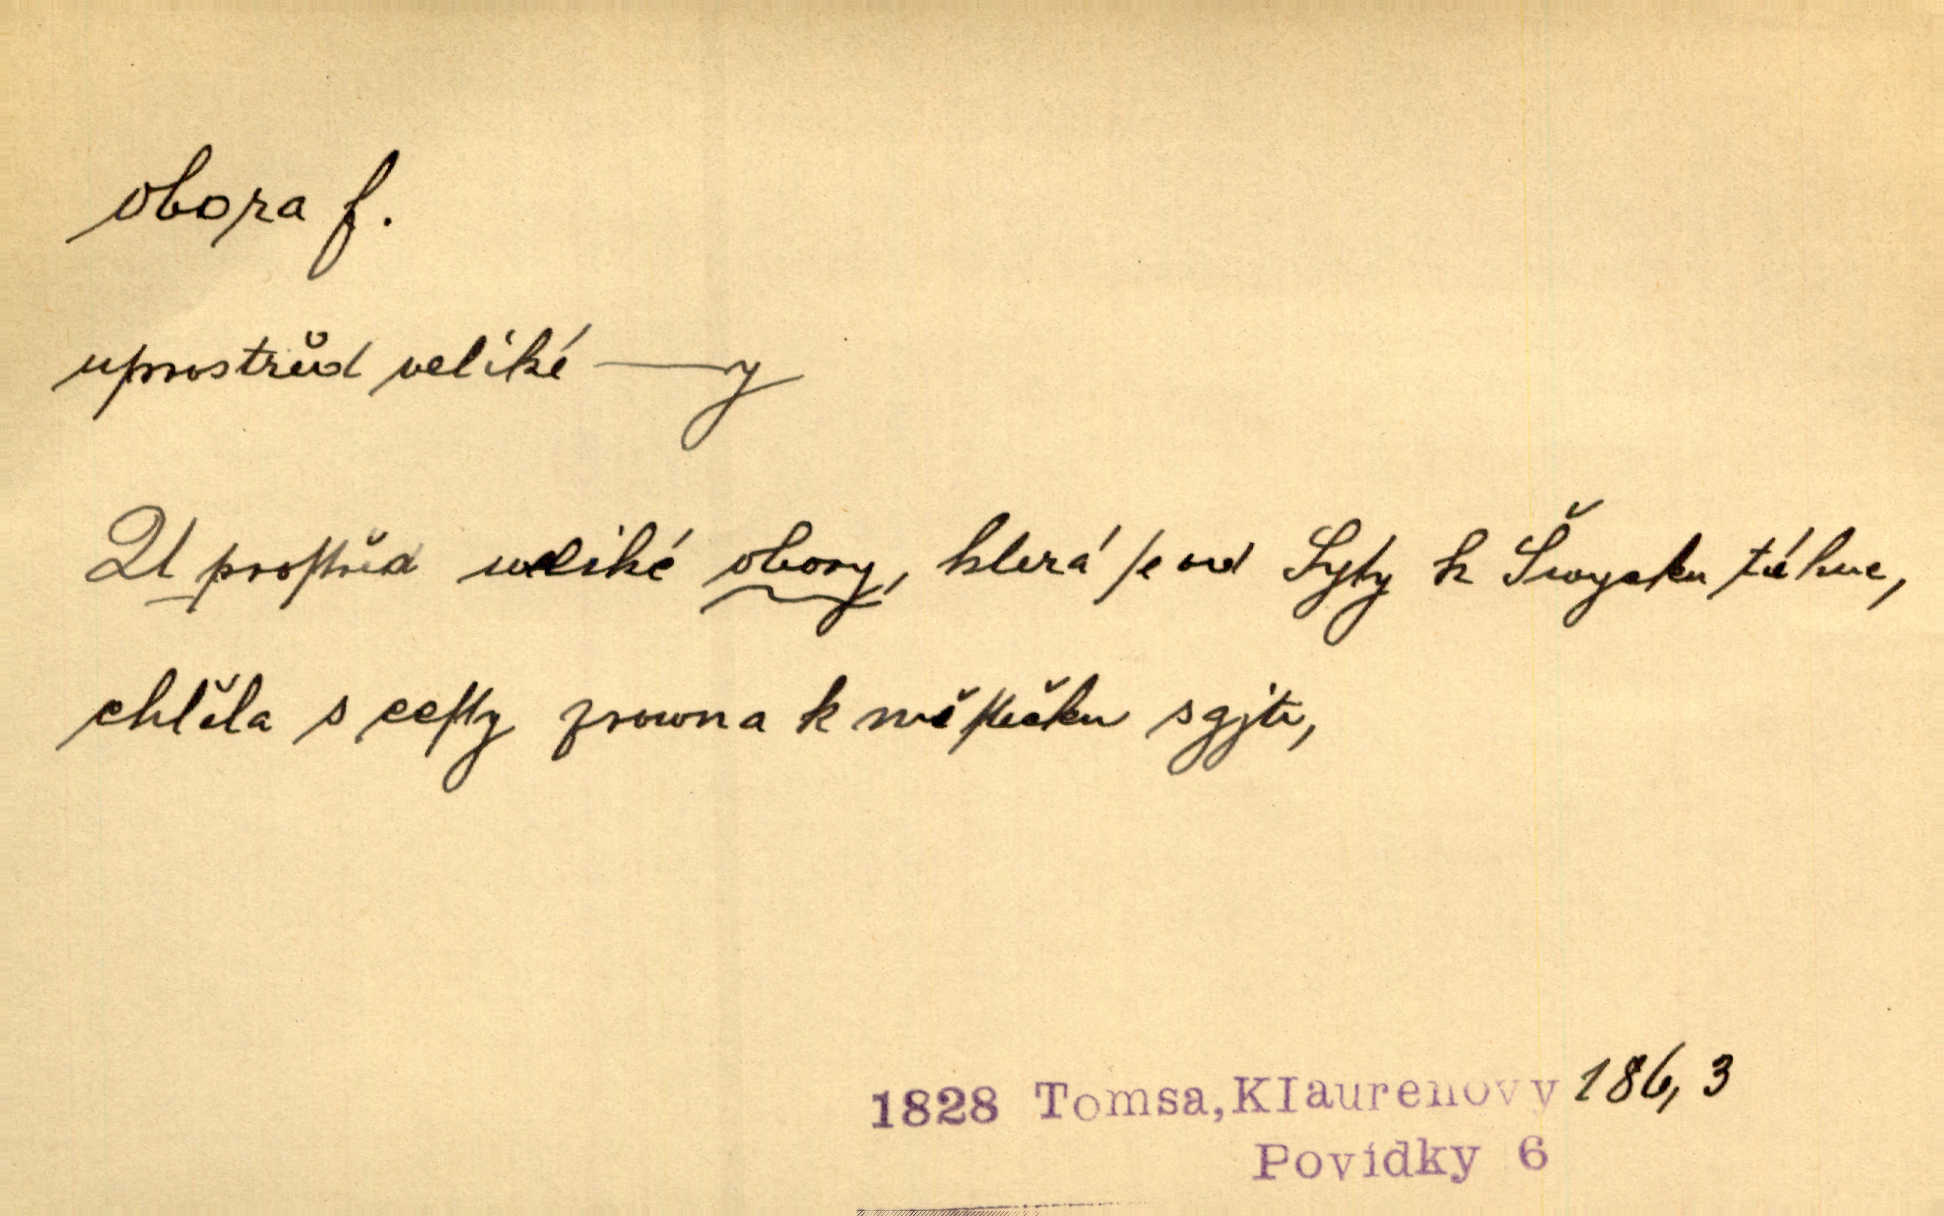 obora f.
uprostřed veliké —y
U proſtřed weliké obory, která ſe od Syſy k Šwycku táhne,
chtěla s ceſty zrowna k měſtečku sgjti,
1828 Tomsa,KIaurenovy 186,3
Povídky 6